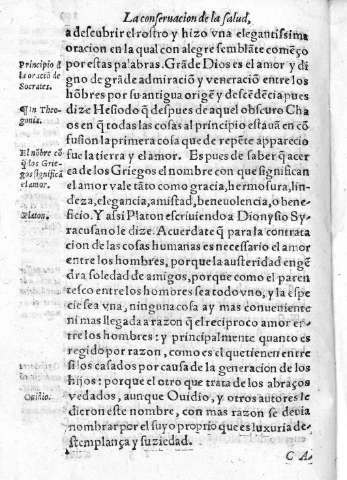 La conseruacion de la salud,
a descubrir el rostro y hizo vna elegantissima
oracion en la qual con alegre semblãte comẽço
Principio đ la oraciõ de Socrates.
por estas palabras. Grãde Dios es el amor y di
gno de grãde admiraciõ y veneraciõ entre los
hõbres por su antigua origẽ y descẽdẽcia pues
¶In Theogonia.
dize Hesiodo q̃ despues de aquel obscuro Cha
os en q̃ todas las cosas al principio estauã en cõ
fusion la primera cosa que de repẽte apparecio
El nõbre cõ q̃ los Griegos significã el amor.
fue la tierra y el amor. Es pues de saber q̃ acer
ca de los Griegos el nombre con que significan
el amor vale tãto como gracia, hermosura, lin-
deza, elegancia, amistad, beneuolencia, o bene-
Platon.
ficio. Y assi Platon escriuiendo a Dionysio Sy-
racusano le dize. Acuerdate q̃ para la contrata
cion de las cosas humanas es necessario el amor
entre los hombres, porque la austeridad engẽ
dra soledad de amigos, porque como el paren
tesco entre los hombres sea todo vno, y la espe
cie sea vna, ninguna cosa ay mas conueniente
ni mas llegada a razon q̃ el reciproco amor en-
tre los hombres: y principalmente quanto es
regido por razon, como es el que tienen entre
si los casados por causa de la generacion de los
hijos: porque el otro que trata de los abraços
Ouidio.
vedados, aunque Ouidio, y otros autores le
dieron este nombre, con mas razon se deuia
nombrar por el suyo proprio que es luxuria de-
stemplança y suziedad.
C A-